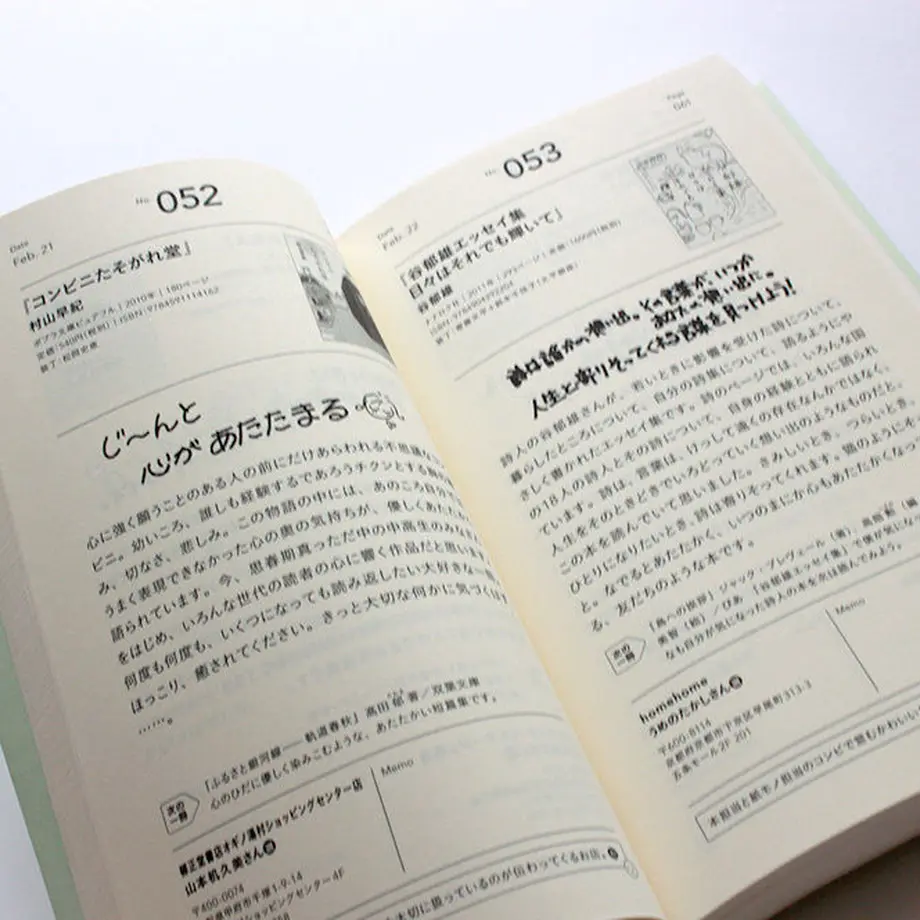 No. 052
Date
Feb. 21
『コンビニたそがれ堂』
村山早紀
ポプラ文庫ピュアフル | 2010年 | 180ページ
定価：540円（税別） | ISBN：9784591114162
装丁：松岡史恵
じ〜んと
心が あたたまる
心に強く願うことのある人の前にだけあらわれる不思議な
ビニ。幼いころ、誰しも経験するであろうチクンとする
み、切なさ、悲しみ。この物語の中には、あのころ自分で
うまく表現できなかった心の奥の気持ちが、優しくあたた
語られています。今、思春期真っただ中の中高生のみな
をはじめ、いろんな世代の読者の心に響く作品だと思い
何度も何度も、いくつになっても読み返したい大好きな
ほっこり、癒されてください。きっと大切な何かに気づく
……。
次の一冊
『ふるさと銀河線――軌道春秋』髙田郁 著／双葉文庫
心のひだに優しく染みこむような、あたたかい短篇集です。
ショッピングセンター店
山本机久美さん
〒400-0074
甲府市千塚1-9-14
ショッピングセンター4F
Memo
大切に扱っているのが伝わってくるお店。
Page
061
No. 053
Date
Feb. 22
『谷郁雄エッセイ集
日々はそれでも輝いて』
谷郁雄
ナナロク社 | 2011年 | 293ページ
ISBN：9784904292204
詩は誰かの想い出。その言葉が、いつか
あなたの想い出に。
人生と寄りそってくれる言葉を見つけよう！
詩人の谷郁雄さんが、若いときに影響を受けた詩について、
暮らしたところについて、自分の詩集について、語るようにや
さしく書かれたエッセイ集です。詩のページでは、いろんな国
の18人の詩人とその詩について、自身の経験とともに語られ
ています。詩は、言葉は、けっして遠くの存在なんかではなく、
人生をそのときどきでいろどっていく想い出のようなものだと。
この本を読んでいて思いました。さみしいとき、つらいとき、
ひとりになりたいとき、詩は寄りそってくれます。猫のようにそ
と。なでるとあたたかく、いつのまにか心もあたたかくなって
る、友だちのような本です。
次の一冊
『鳥への挨拶』ジャック・プレヴェール（著）、高畑
美智（絵）／ぴあ 『谷郁雄エッセイ集』で僕が気になっ
なも自分が気になった詩人の本を次は読んでみよう。
homehome
うめのたかしさん
〒600-8114
京都府京都市下京区早尾町313-3
五条モール2F 201
Memo
本担当と紙モノ担当のコンビで営むかわいい